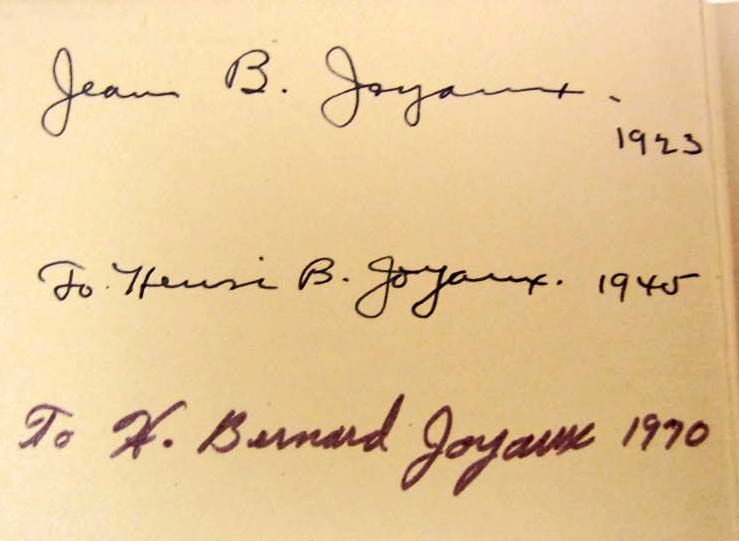 Jean B. Joyaux.
1923
To Henri B. Joyaux. 1945
To H. Bernard Joyaux 1970